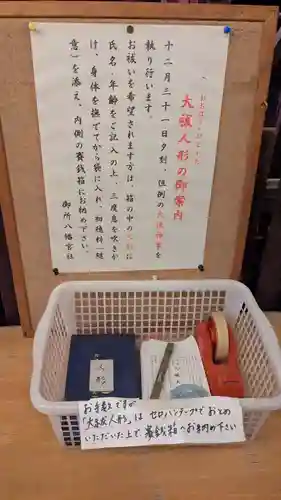 おおはらひひとかた
大祓人形の御案内
十二月三十一日夕刻、恒例の大祓神事を
執り行います。
お祓いを希望されます方は、箱の中の人形に
氏名・年齢をご記入の上、三度息を吹きか
け、身体を撫でてから袋に入れ、初穂料（随
意）を添え、内側の賽銭箱にお納め下さい。
御所八幡宮社
人形
お手数ですが
「大祓人形」は セロハンテープでおとめ
いただいた上で、賽銭箱へお納め下さい